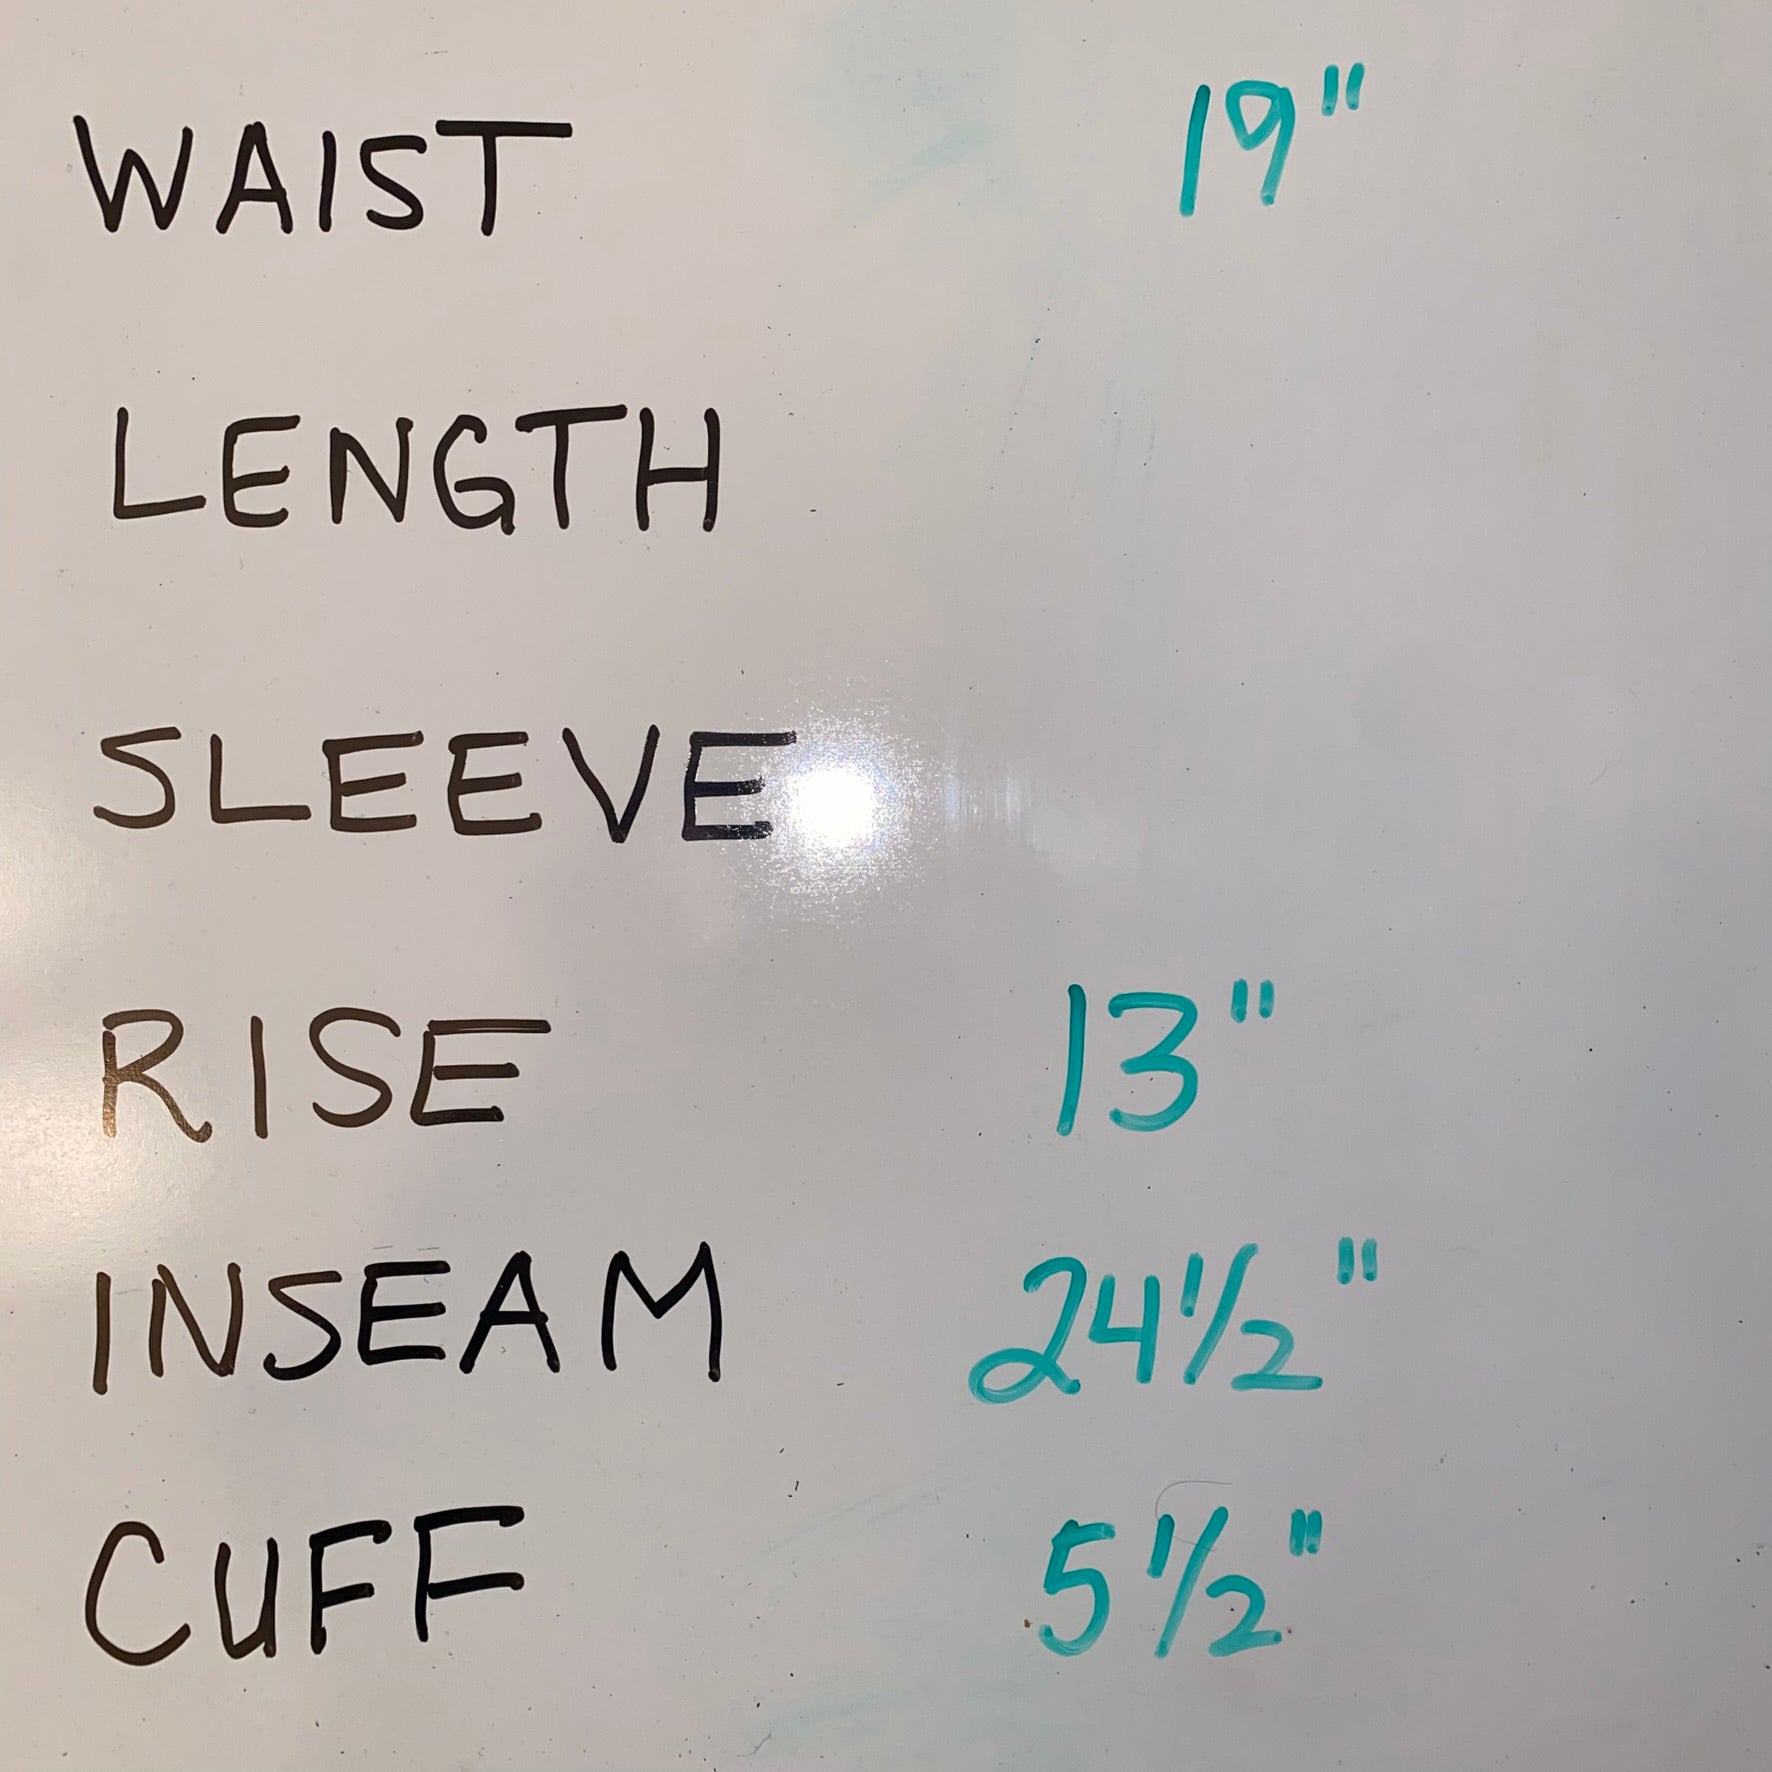 WAIST 19"
LENGTH
SLEEVE
RISE 13"
INSEAM 24 1/2"
CUFF 5 1/2"